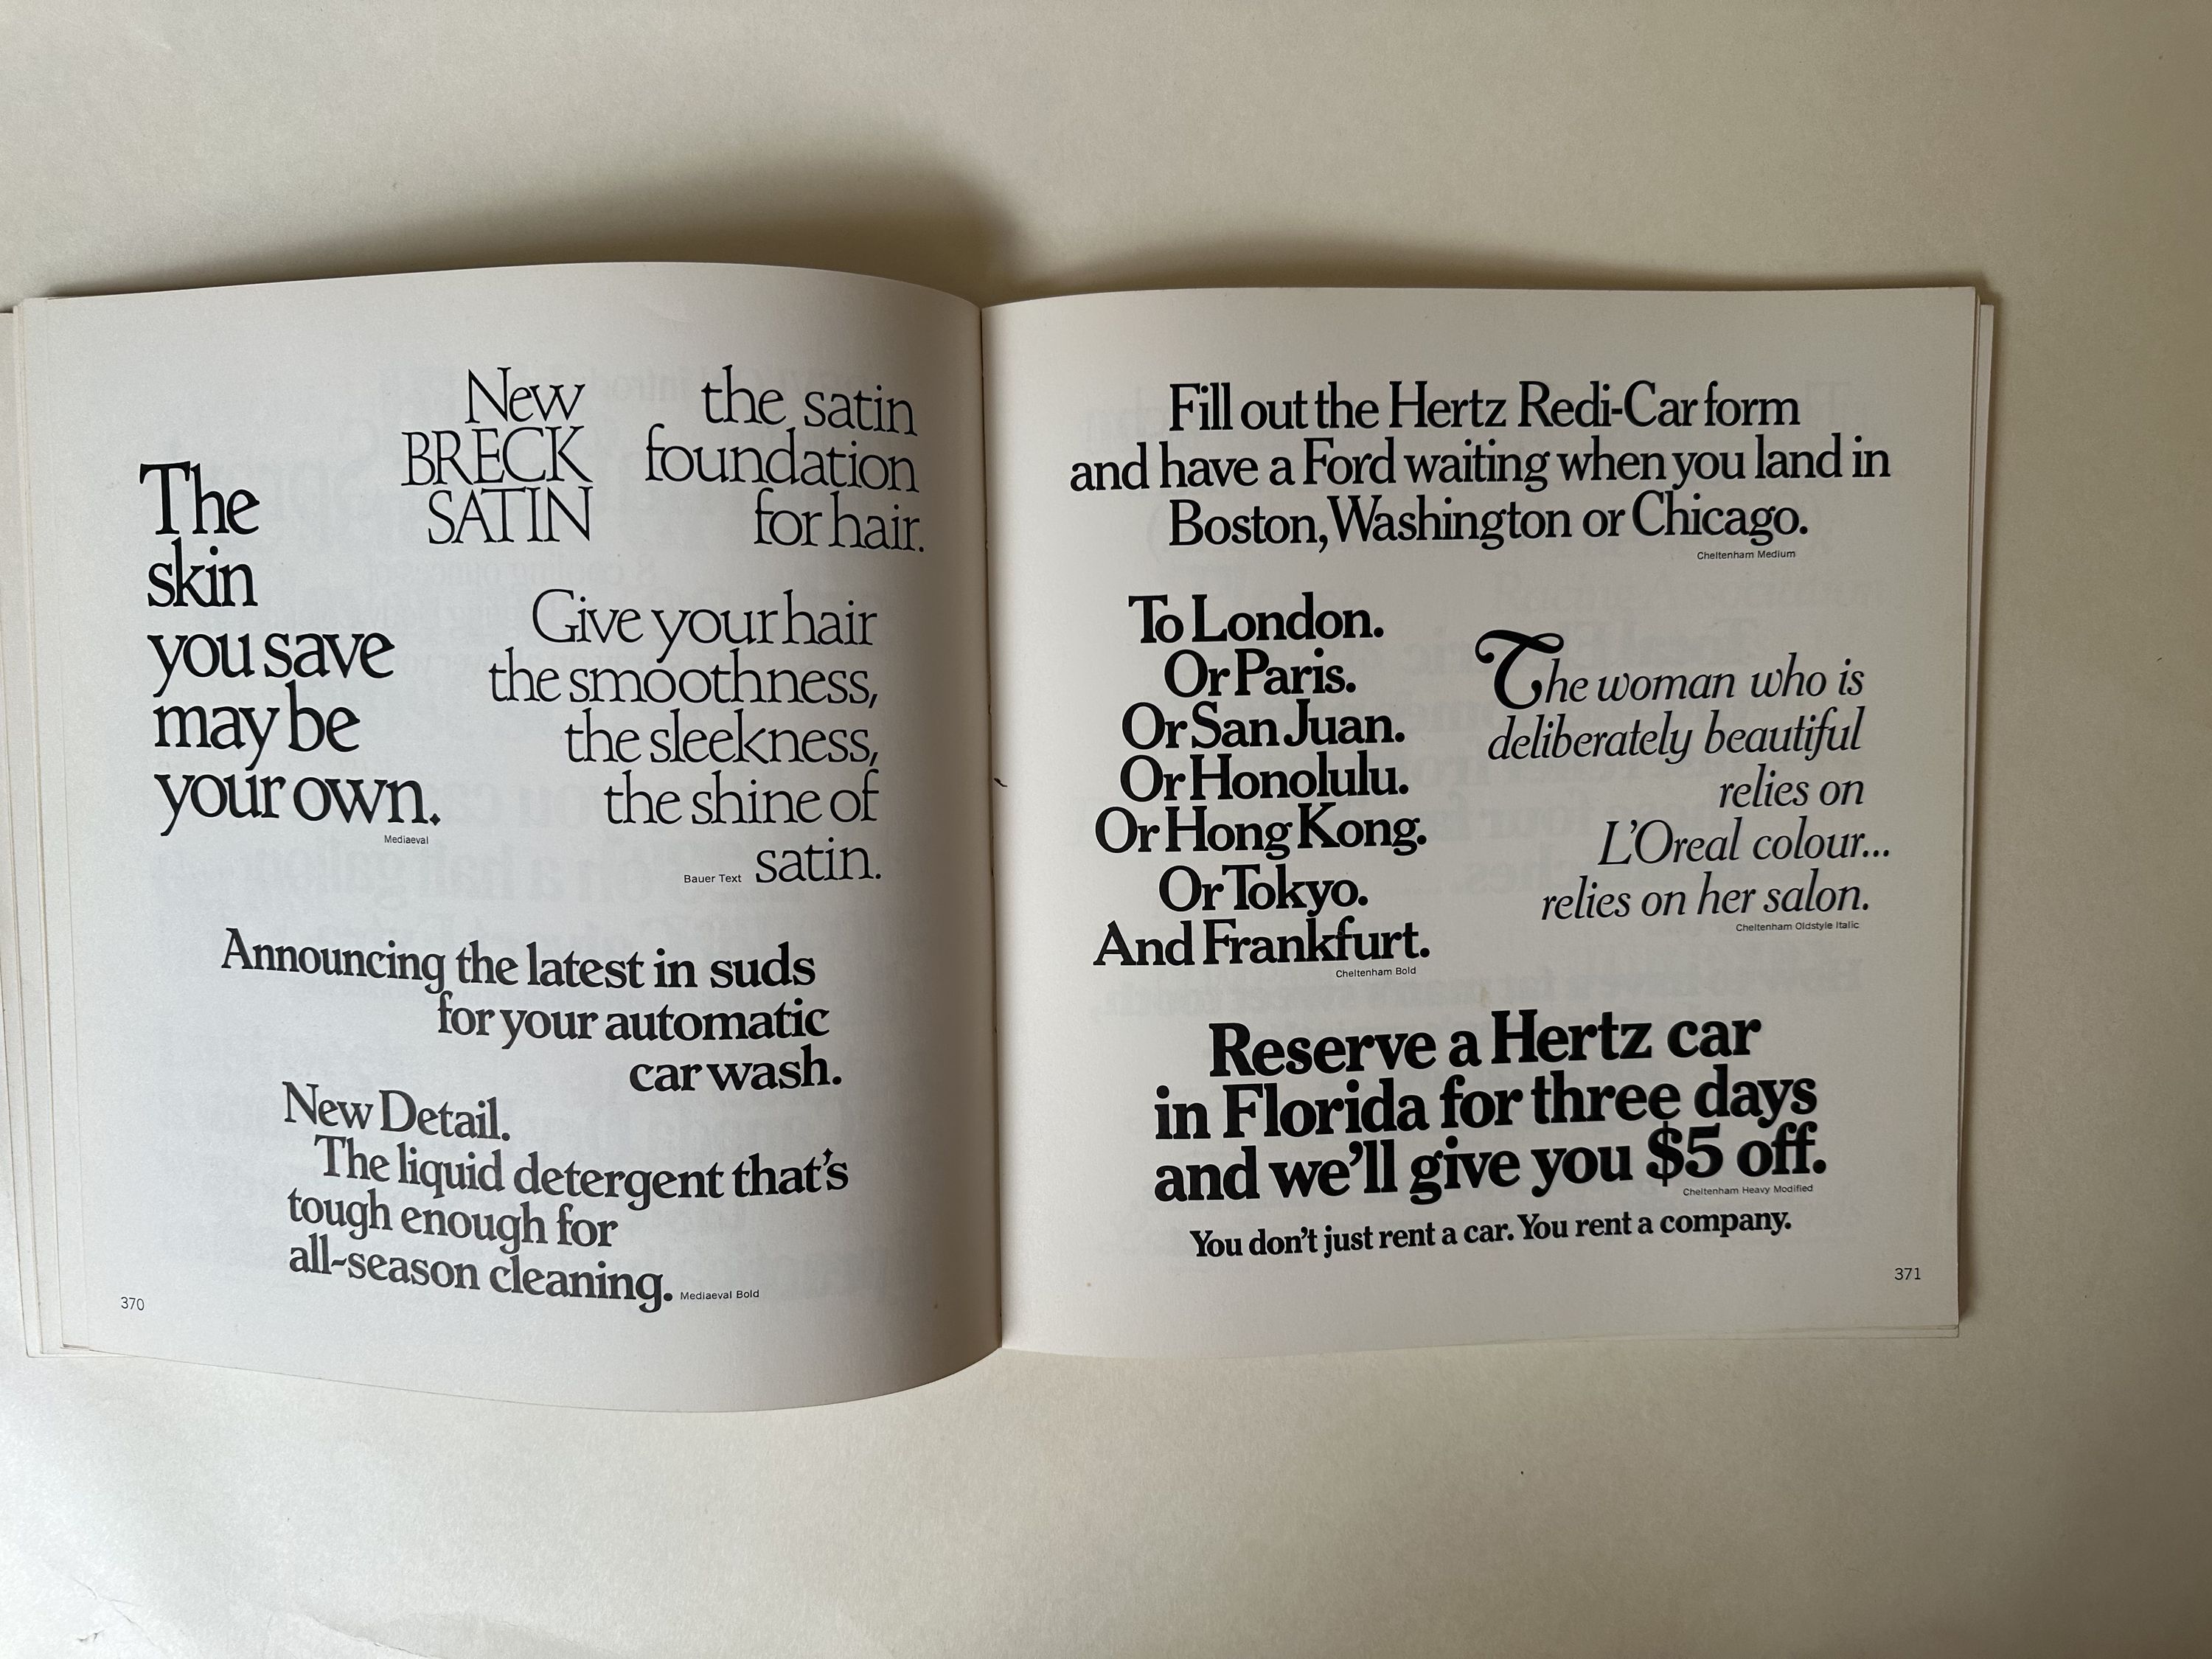 The
skin
you save
may be
your own.
Mediaeval
New
BRECK
SATIN
the satin
foundation
for hair.
Give your hair
the smoothness,
the sleekness,
the shine of
satin.
Bauer Text
Announcing the latest in suds
for your automatic
car wash.
New Detail.
The liquid detergent that's
tough enough for
all-season cleaning.
Mediaeval Bold
370
Fill out the Hertz Redi-Car form
and have a Ford waiting when you land in
Boston, Washington or Chicago.
Cheltenham Medium
To London.
Or Paris.
Or San Juan.
Or Honolulu.
Or Hong Kong.
Or Tokyo.
And Frankfurt.
Cheltenham Bold
The woman who is
deliberately beautiful
relies on
L'Oreal colour...
relies on her salon.
Cheltenham Oldstyle Italic
Reserve a Hertz car
in Florida for three days
and we'll give you $5 off.
Cheltenham Heavy Modified
You don't just rent a car. You rent a company.
371